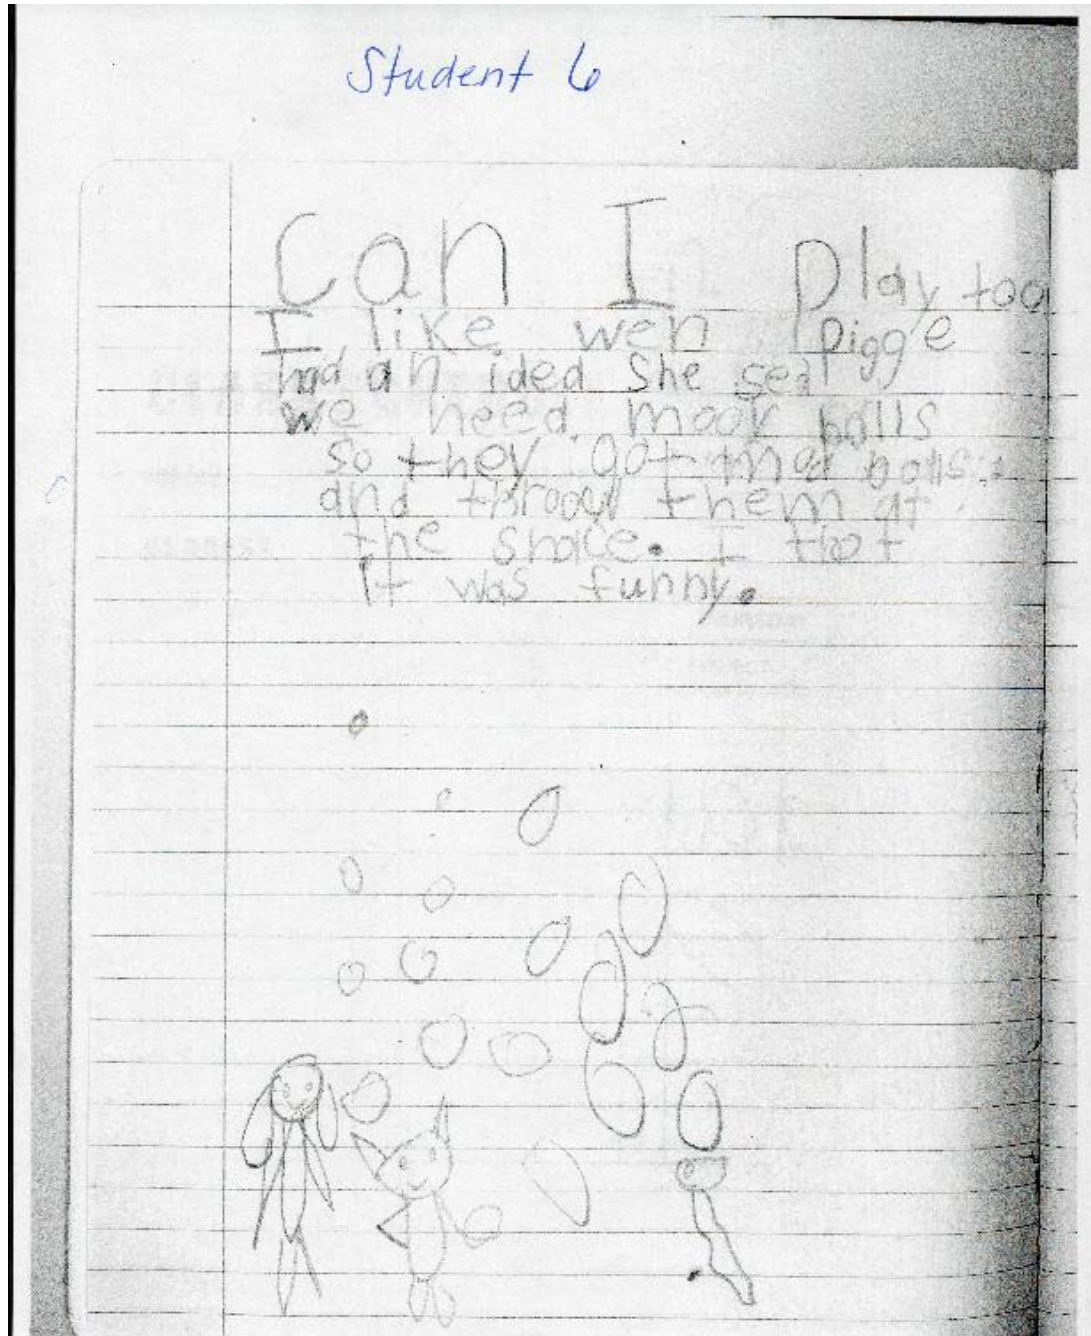 Student 6
Can I play too
I like wen pigge
had an idea she sed
we need moor balls
so they got mor balls
and throow them at
the snake. I thot
It was funny.